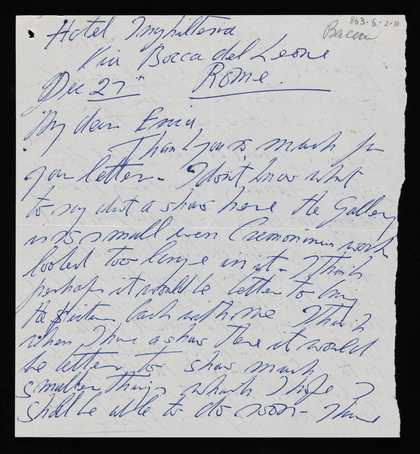 863.5.2.10
Bacon
Hotel Inghilterra
Via Bocca del Leone
Dec 27th Rome.
My dear Erica,
Thank you so much for
your letter - I don't know what
to say about a show here the Gallery
is so small even Cremoninis work
looked too large in it - I think
perhaps it would be better to bring
the pictures back with me I think
when I have a show there it would
be better to show much
smaller things which I hope I
shall be able to do soon - I have